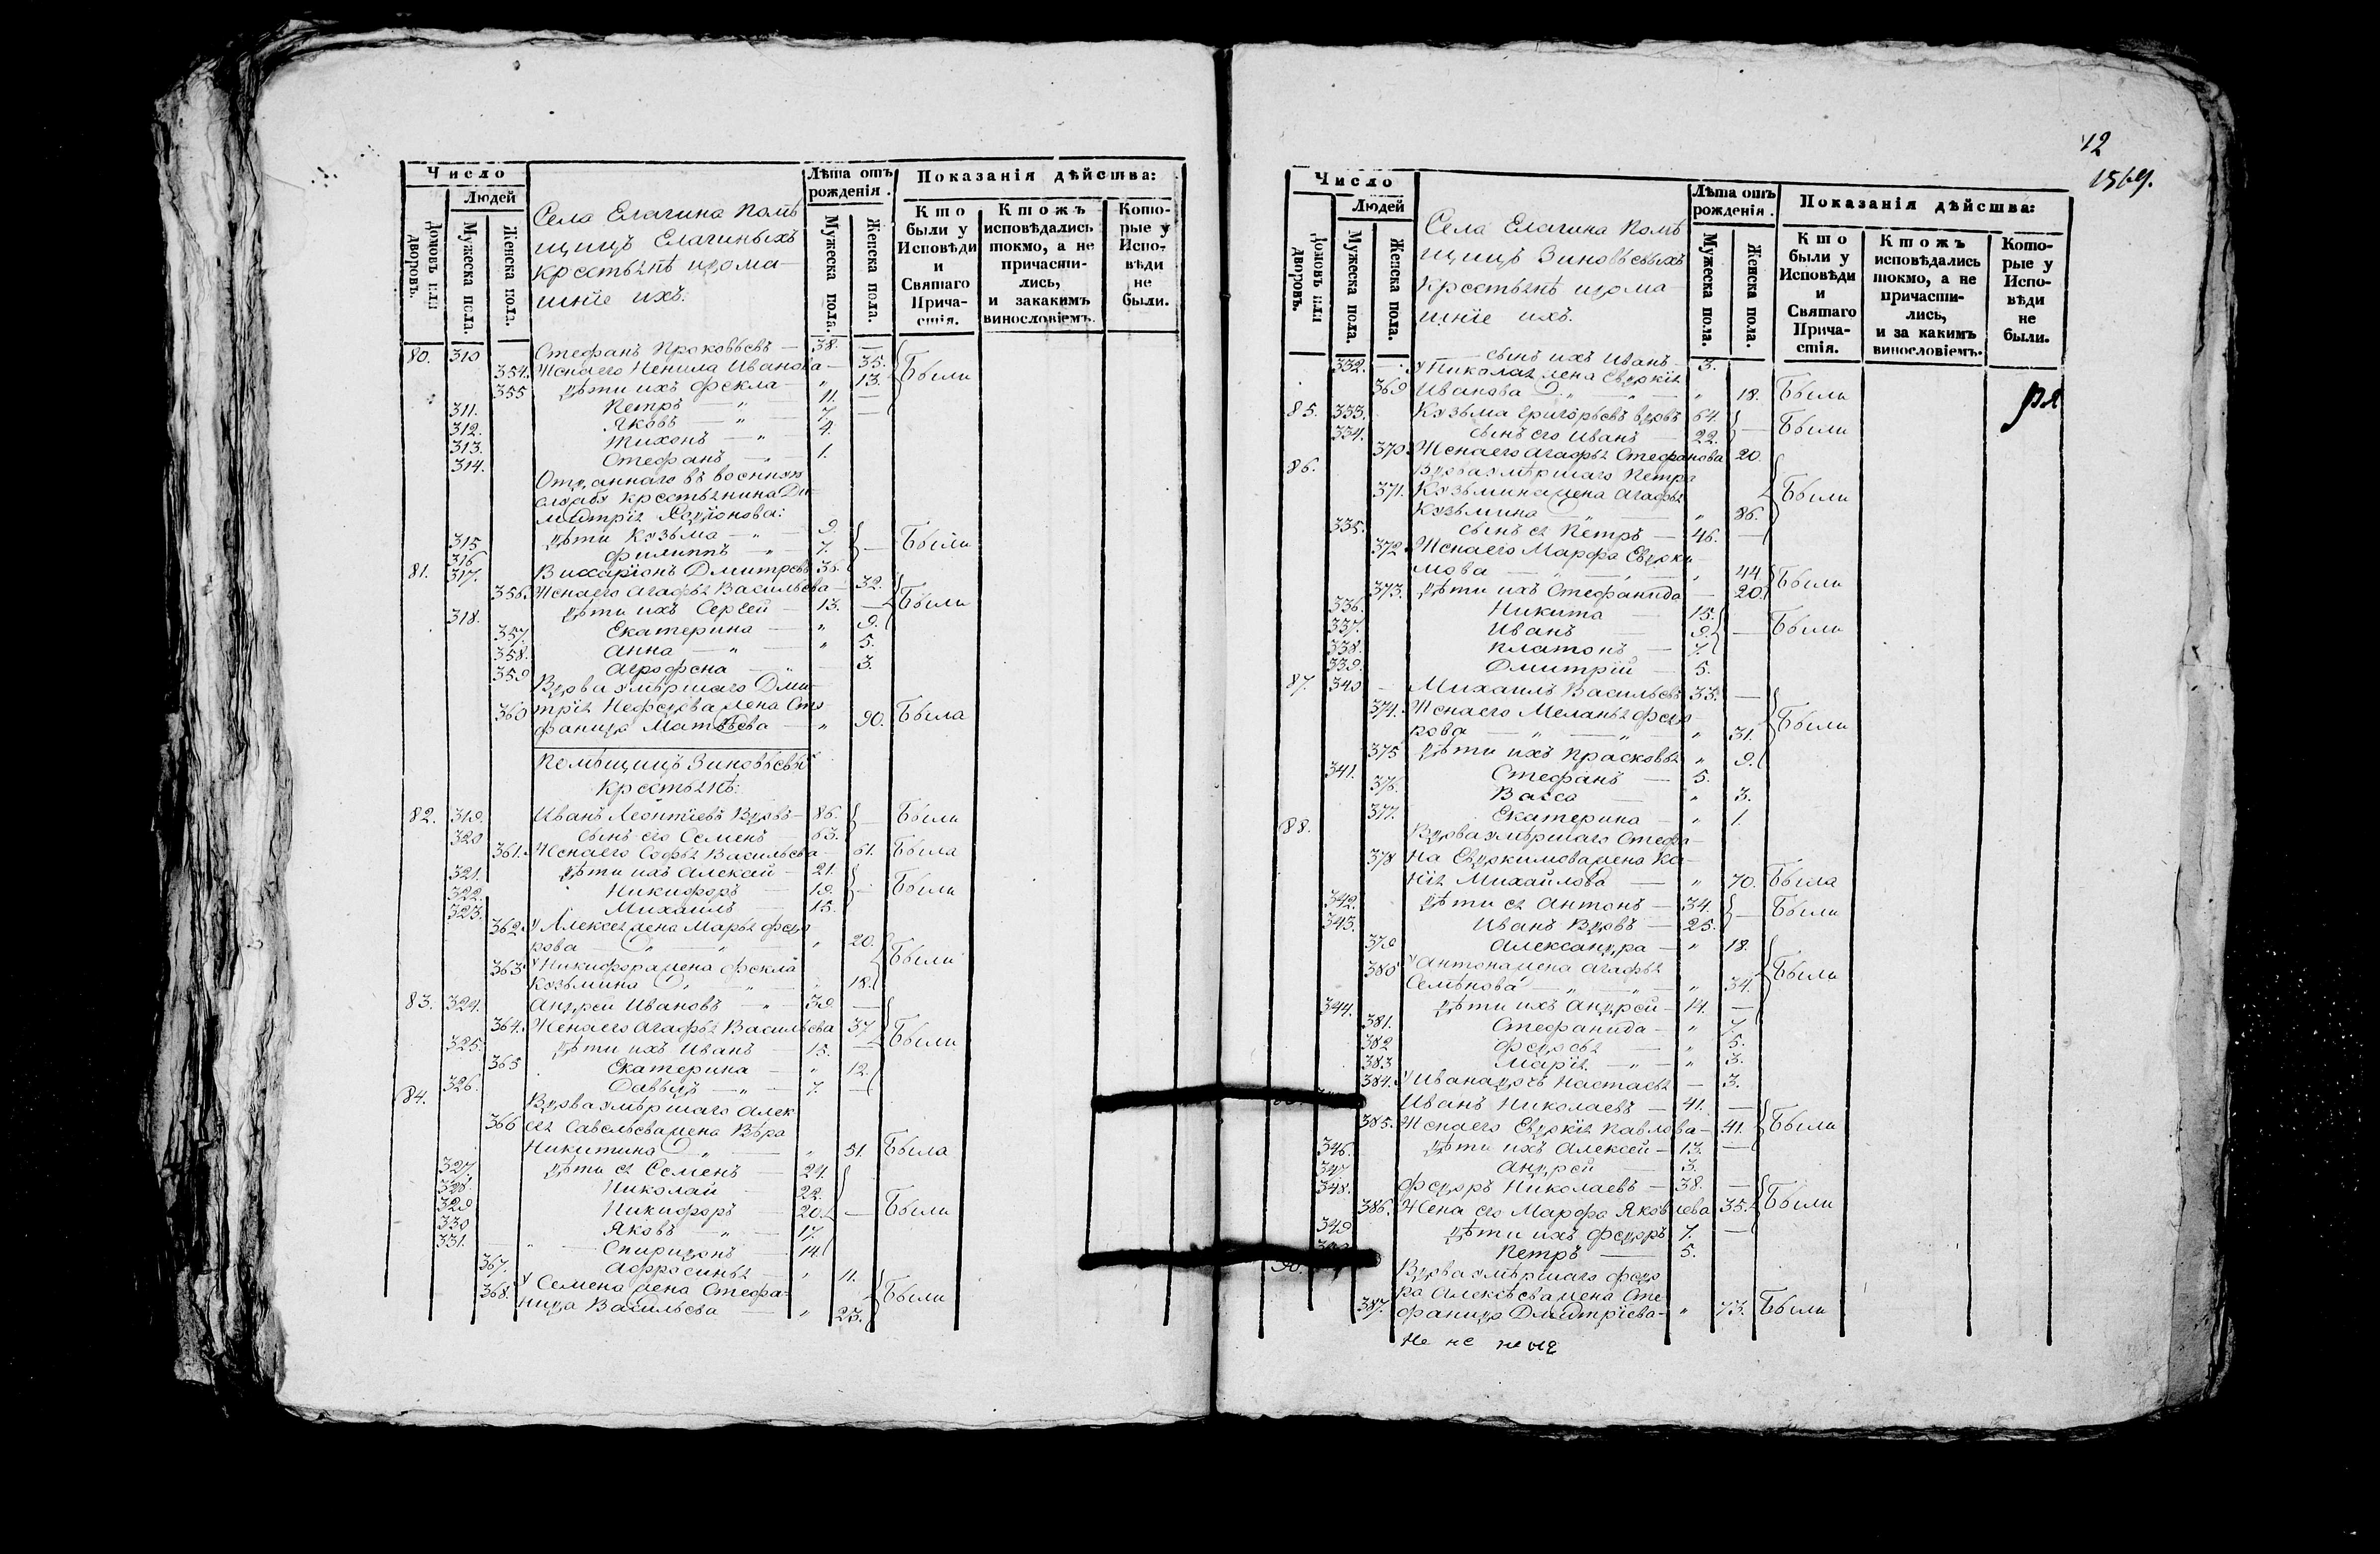 Число
Людей
Домовъ или дворовъ.
Мужеска пола.
Женска пола.
Села Елагина помѣ
щицъ Елагиныхъ
крестьянѣ идома-
шніе ихъ.
Лѣта отъ рожденія.
Мужеска пола.
Женска пола.
Показанія дѣйства:
Кто были у Исповѣди и Святаго Причастія.
Ктожъ исповѣдались токмо, а не причастились, и закакимъ винословіемъ.
Которые у Исповѣди не были.
80. 310 Стефанъ Прокофьевъ — 38. —
354. Жена его Ненила Иванова — 35. Были
355 дѣти ихъ Фекла — " 13.
Петръ — " — 11. —
311. Яковъ — " — 7. —
312. Тихонъ — " — 4.
313. Стефанъ — " — 1.
314.
Отданнаго въ военную
службу крестьянина Ди-
митрія Родіонова:
315 дѣти Козьма — " — 9.
316 Филиппъ — " — 7. — Были
81. 317. Виссаріонъ Дмитревъ 36.
356. Жена его Агафья Васильева — 32.
318. дѣти ихъ Сергей — 13. — Были
357. Екатерина — " 9.
358. Анна — " — " 5.
359 Аграфена — " — 3.
Вдова умѣршаго Дми-
360 трія Нефедова жена Сте
фанида Матвѣева — " 90. Была
Помѣщицъ Зиновьевыхъ
Крестьянѣ:
82. 319. Иванъ Леонтіевъ Вдовъ — 86.
320 сынъ его Семенъ — 63. — Были
361. Жена его Софья Васильева — 61. Была
321. дѣти ихъ Алексей — 21.
322. Никифоръ — 19. — Были
323. Михаилъ — 15.
362. у Алексея жена Марья Федо
рова — " — " — " 20. Были
363 у Никифора жена Фекла
Козьмина — " — " 18.
83. 324. Андрей Ивановъ — " — 39. —
364. Жена его Агафья Васильева 37 Были
325. дѣти ихъ Иванъ — 15. —
365 Екатерина — " 12.
326. Давыдъ — " — 7. —
84. Вдова умѣршаго Алек
366 сея Савельева жена Вѣра
Никитина — " — " 51. Была
327. дѣти ея Семенъ — 24.
328. Николай 22.
329 Никифоръ — 20. — Были
330 Яковъ — " — 17.
331. Спиридонъ — 14.
367. Афросинья — " 11.
368. у Семена жена Стефа-
нида Васильева — " 23. Были
12
1569.
Число
Людей
Домовъ или дворовъ.
Мужеска пола.
Женска пола.
Села Елагина помѣ
щицъ Зиновьевыхъ
Крестьянѣ идома
шніе ихъ.
Лѣта отъ рожденія.
Мужеска пола.
Женска пола.
Показанія дѣйства:
Кто были у Исповѣди и Святаго Причастія.
Ктожъ исповѣдались токмо, а не причастились, и за какимъ винословіемъ.
Которые у Исповѣди не были.
332. — сынъ ихъ Иванъ — 3.
у Николая жена Евдокія
369 Иванова — " — " 18. Были
85. 333. Козьма Григорьевъ вдовъ 64.
334. сынъ его Иванъ — 22. — Были
370. Жена его Агафья Стефанова 20.
86. Вдова умѣршаго Петра
371. Козьмина жена Агафья Были
Козьмина — " 86.
335. сынъ ея Петръ — 46. —
372. Жена его Марфа Евдоки
мова — " — " 44 Были
373. дѣти ихъ Стефанида — 20.
336. Никита — 15.
337. Иванъ — 9. — Были
338. Платонъ — 7.
339. Дмитрій — 5.
87. 340 — Михаилъ Васильевъ 33. —
374. Жена его Меланья Федо-
рова — " — " — " 31. Были
375 дѣти ихъ Прасковья " 9.
341. Стефанъ — 5.
376. Васса — " 3.
377. Екатерина — " 1.
88. Вдова умѣршаго Стефа-
378 на Евдокимова жена Ксе-
нія Михайлова — " 70. Была
342. дѣти ея Антонъ — 34.
343. Иванъ Вдовъ — 25. — Были
379 Александра — " 18.
380 у Антона жена Агафья Были
Семѣнова — " — " — " 34.
344. дѣти ихъ Андрей — 14. —
381. Стефанида — " 7.
382 Федосья — " 5.
383 Марія — " — " 3.
384. у Ивана дочь Настасья — 3.
Иванъ Николаевъ — 41. —
385. Жена его Евдокія Павлова — 41. Были
346. дѣти ихъ Алексей — 13. —
347. Андрей — 3.
348. Федоръ Николаевъ — 38. —
386. Жена его Марфа Яковлева 35. Были
349 дѣти ихъ Федоръ 7. —
Петръ — 5.
90. Вдова умѣршаго Федо
ра Алексѣева жена Сте
387. фанида Дмитріева — " 73. Были